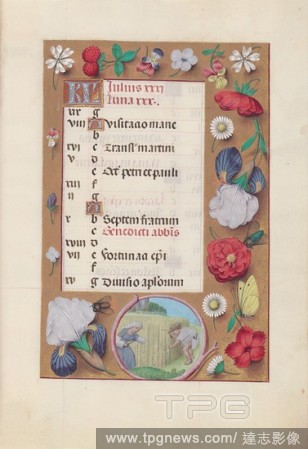 KL Iulius xxxi
luna xxx.
xix g
viii A Visitatio marie
b
xvi c Transl' martini
v d
e Oct' petri et pauli
xiii f
ii g
A
x b Septem fratrum
c Benedicti abbis
xviii d
vii e Fortunati epi
f
xv g Divisio aplorum
TPG
www.tpgnews.com/達志影像